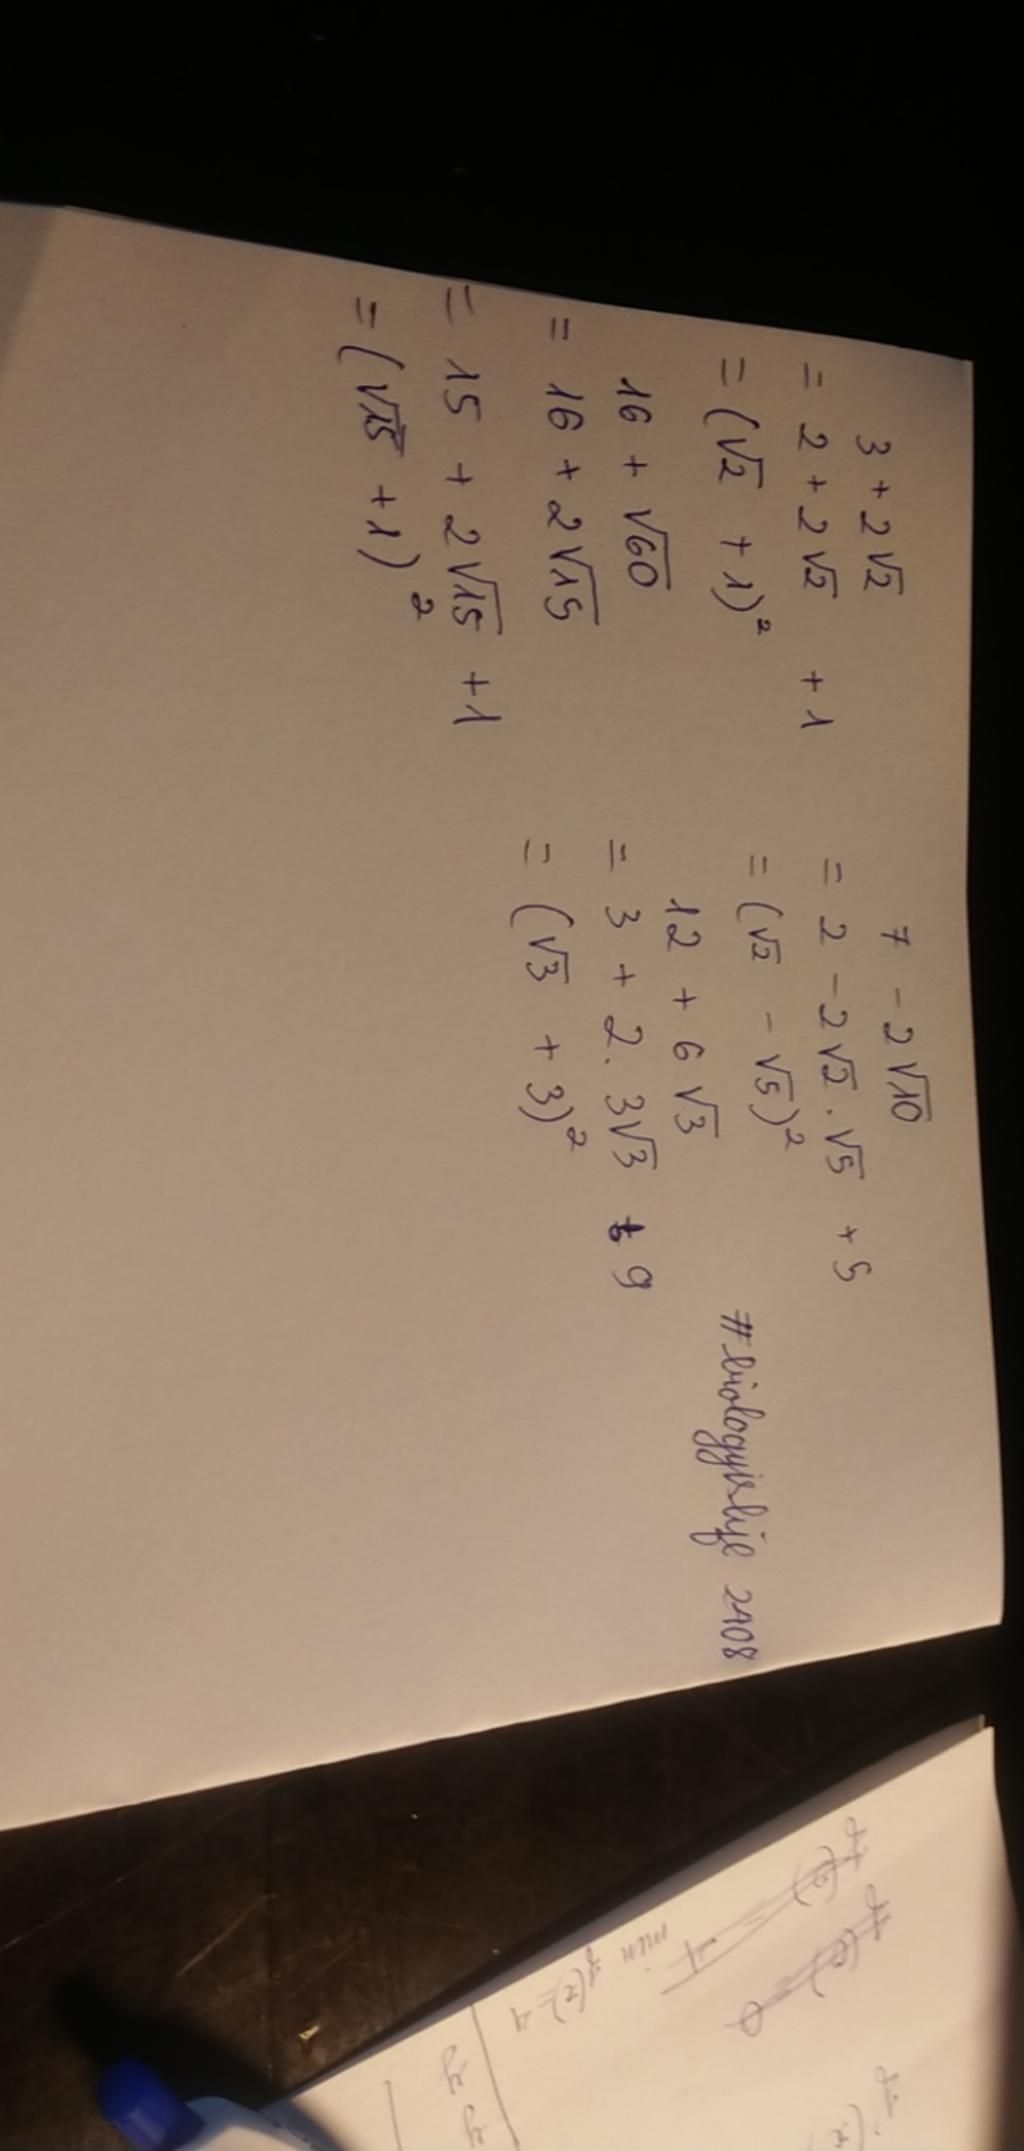 3 + 2√2
= 2 + 2√2 + 1
= (√2 + 1)²
16 + √60
= 16 + 2√15
= 15 + 2√15 + 1
= (√15 + 1)²
7 - 2√10
= 2 - 2√2 . √5 + 5
= (√2 - √5)²
12 + 6√3
= 3 + 2. 3√3 + 9
= (√3 + 3)²
2108
min y(x) = 1